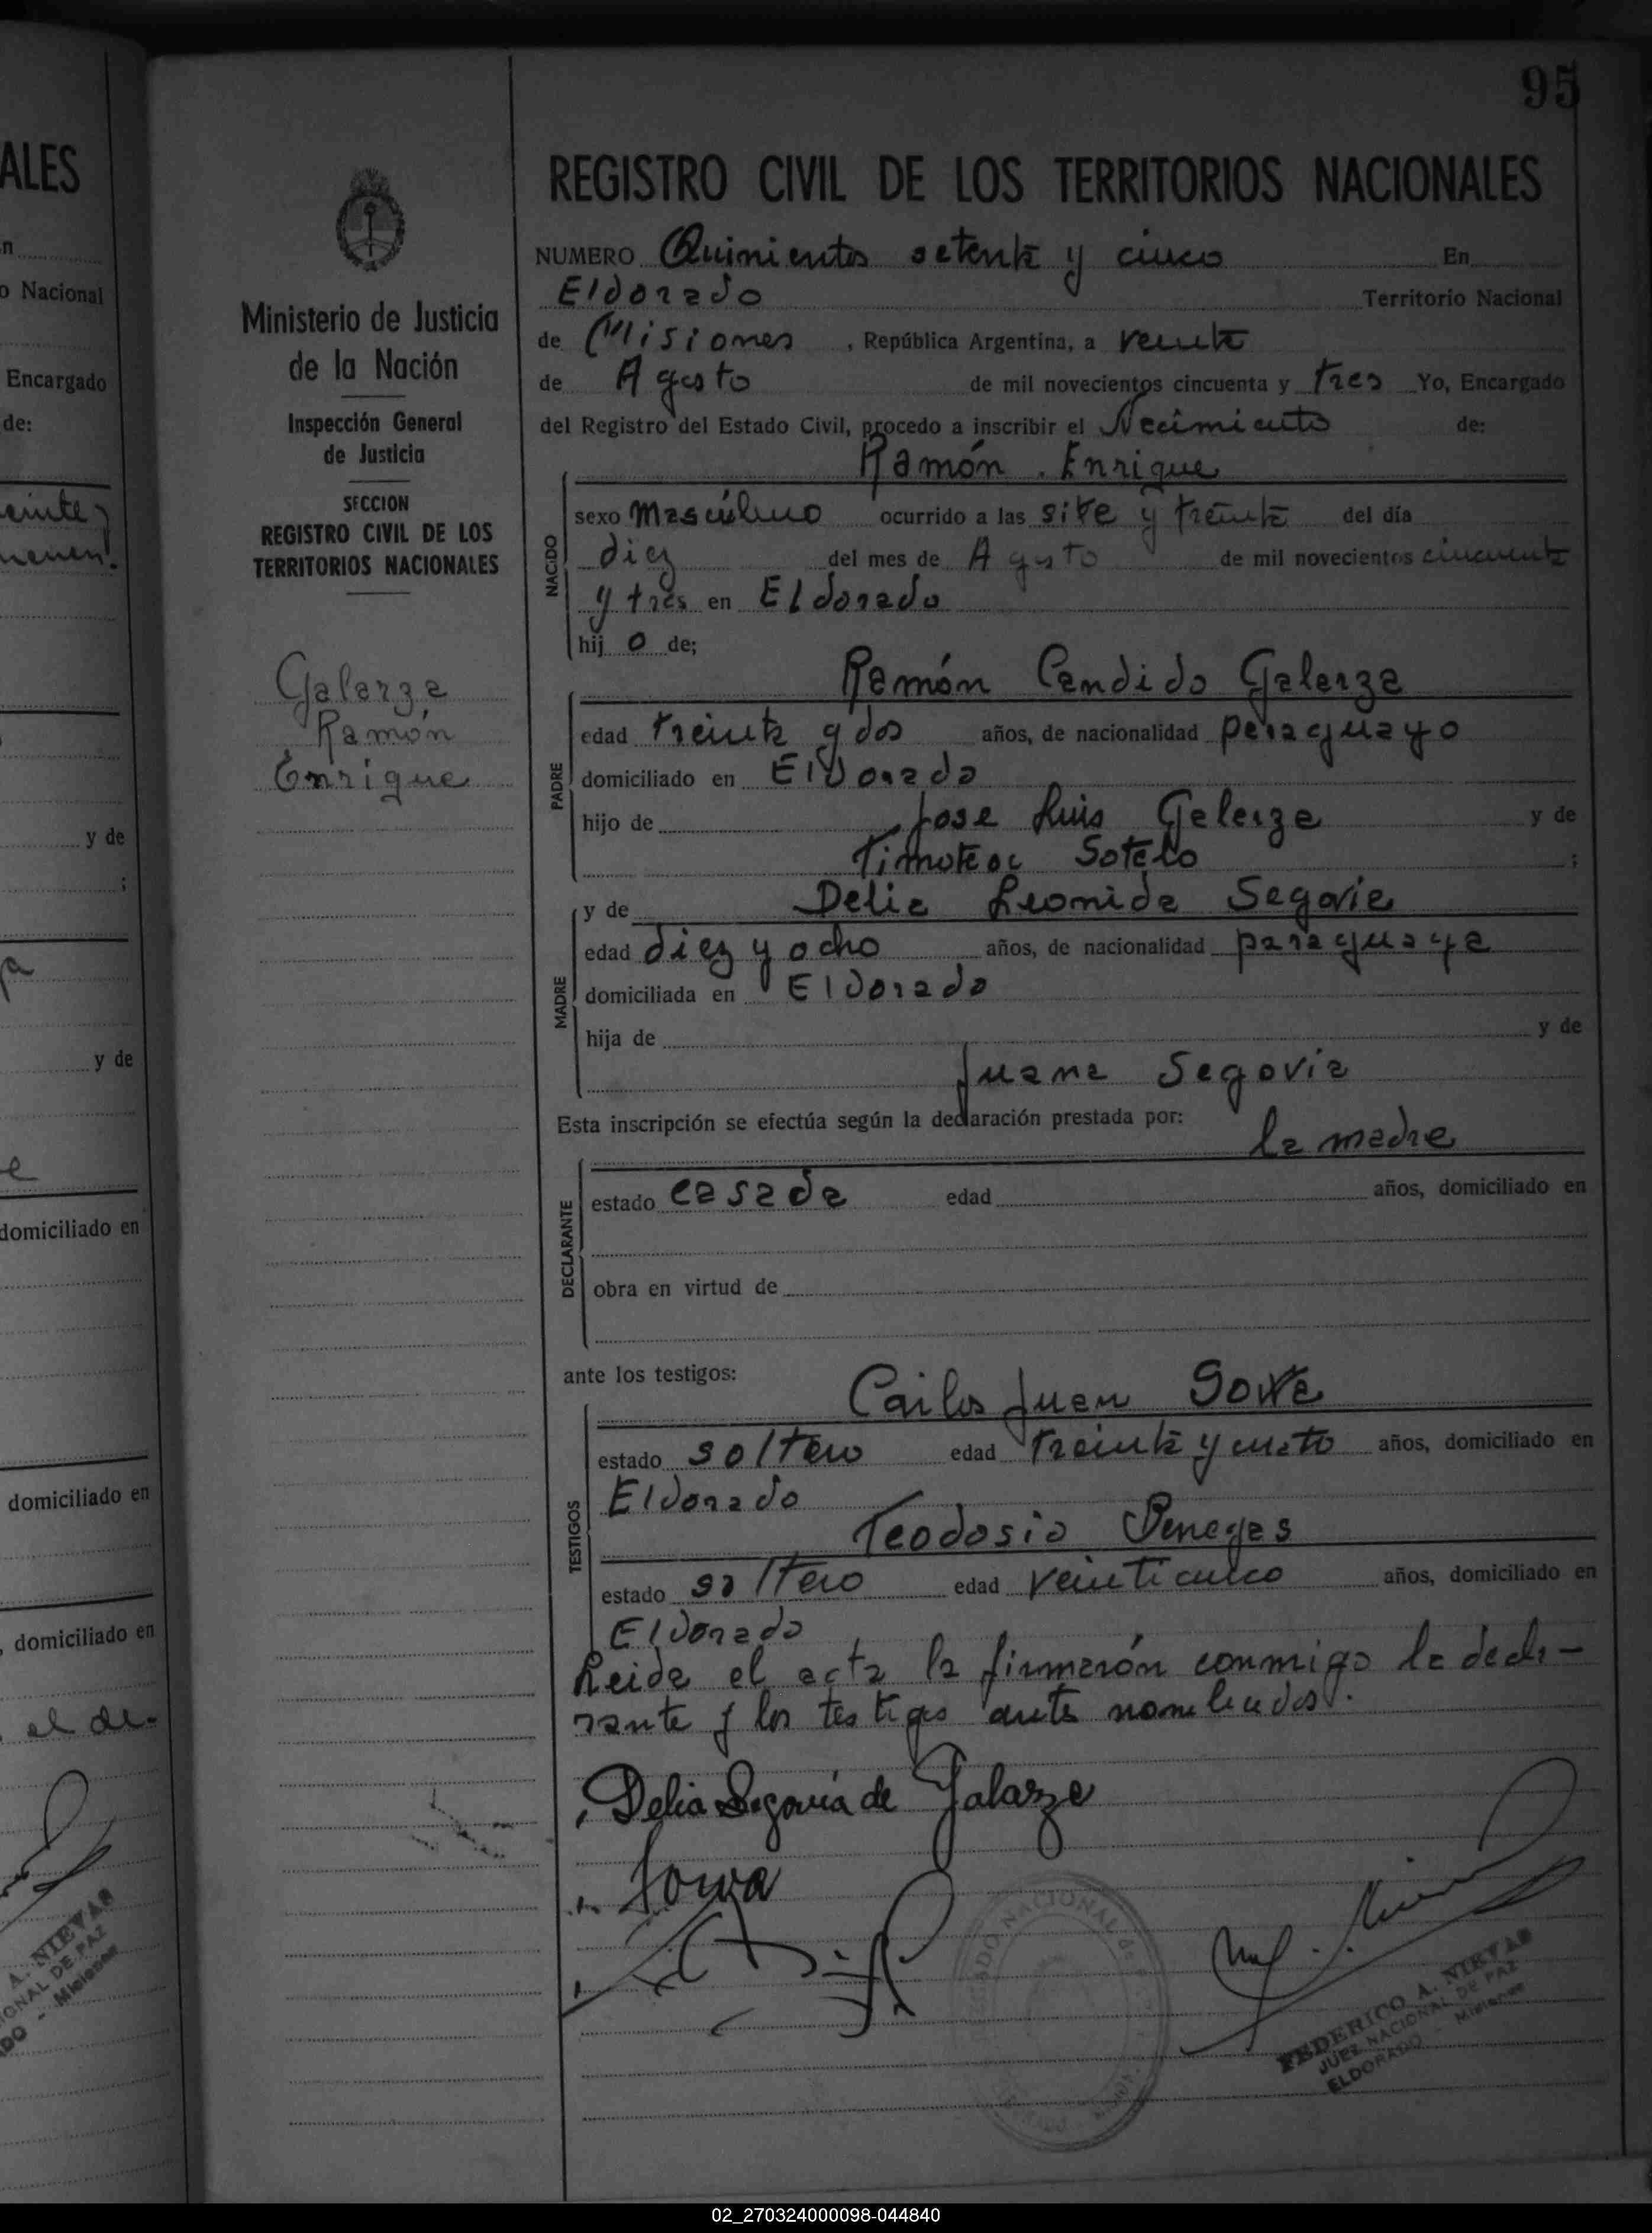 95
ALES
n
o Nacional
Encargado
de:
y de
;
y de
domiciliado en
domiciliado en
, domiciliado en
el de-
A. NIEVAS
IONAL DE PAZ
DO - Misiones
Ministerio de Justicia
de la Nación
Inspección General
de Justicia
SECCION
REGISTRO CIVIL DE LOS
TERRITORIOS NACIONALES
Galarza
Ramón
Enrique
REGISTRO CIVIL DE LOS TERRITORIOS NACIONALES
NUMERO Quinientos setenta y cinco En
Eldorado Territorio Nacional
de Misiones , República Argentina, a veinte
de Agosto de mil novecientos cincuenta y tres Yo, Encargado
del Registro del Estado Civil, procedo a inscribir el Nacimiento de:
Ramón Enrique
NACIDO
sexo masculino ocurrido a las siete y treinta del día
diez del mes de Agosto de mil novecientos cincuenta
y tres en Eldorado
hij o de;
Ramón Candido Galarza
PADRE
edad treinta y dos años, de nacionalidad paraguayo
domiciliado en Eldorado
hijo de Jose Luis Galarza y de
Timotea Sotelo ;
y de Delia Leonida Segovia
MADRE
edad diez y ocho años, de nacionalidad paraguaya
domiciliada en Eldorado
hija de y de
Juana Segovia
Esta inscripción se efectúa según la declaración prestada por:
la madre
DECLARANTE
estado casada edad años, domiciliado en
obra en virtud de
ante los testigos:
Carlos Juan
TESTIGOS
estado soltero edad treinta y cuatro años, domiciliado en
Eldorado
Teodosio Venegas
estado soltero edad veinticinco años, domiciliado en
Eldorado
Leida el acta la firmarón conmigo la decla-
rante y los testigos antes nombrados.
Delia Segovia de Galarza
JUZGADO NACIONAL DE
FEDERICO A. NIEVAS
JUEZ NACIONAL DE PAZ
ELDORADO - Misiones
02_270324000098-044840